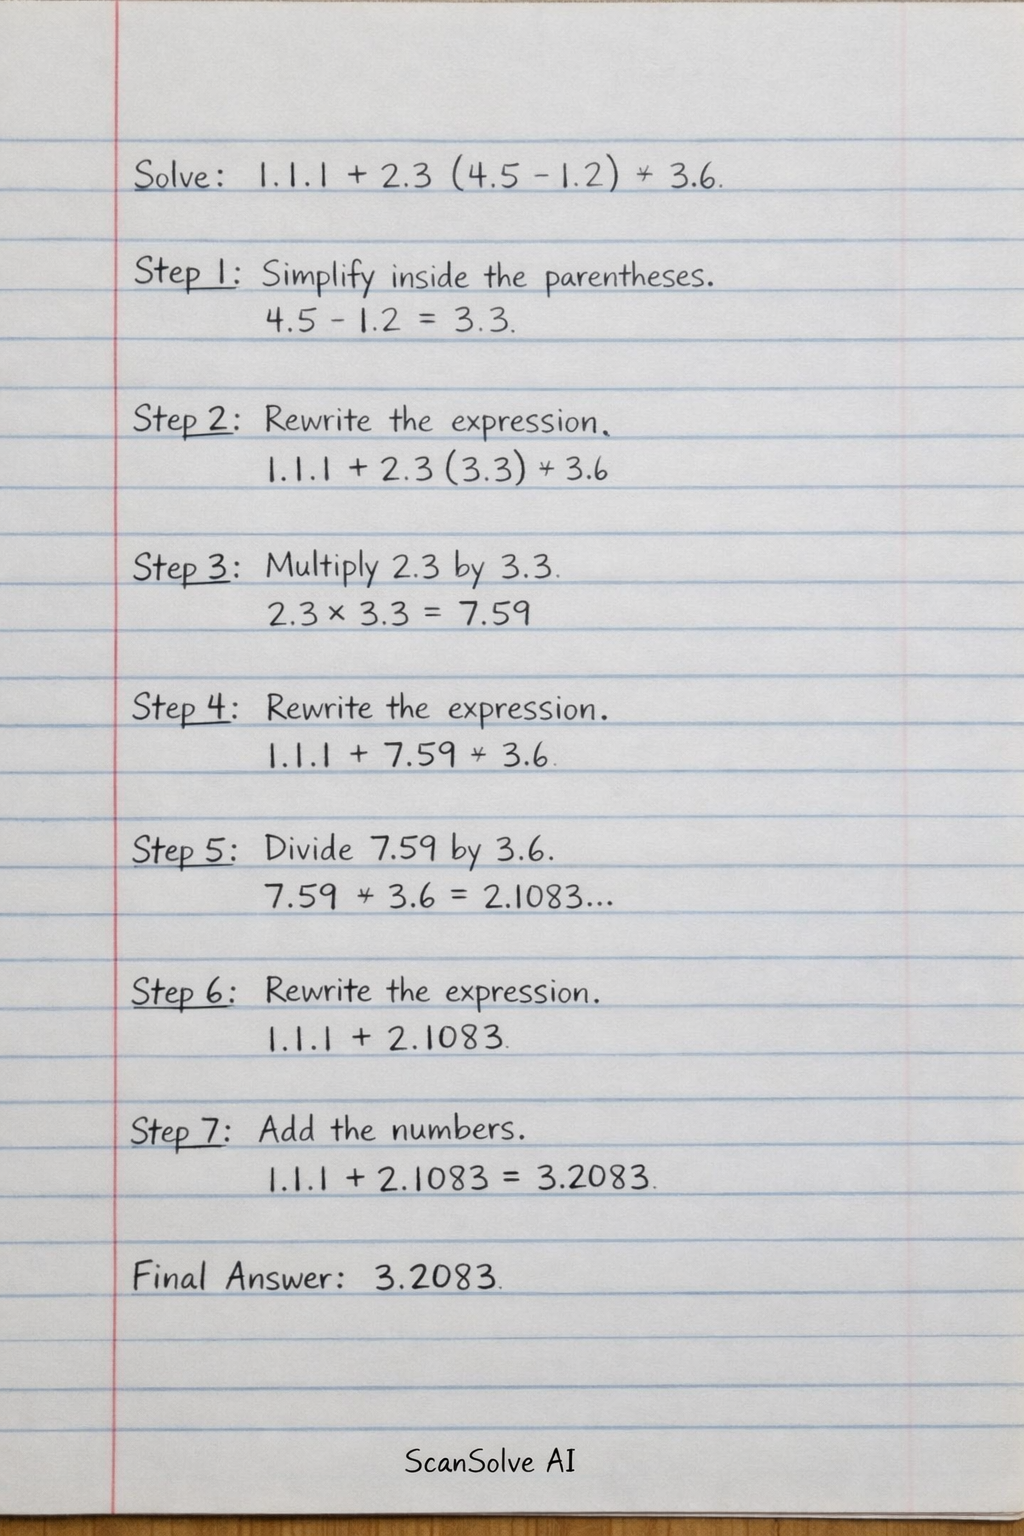 Solve: 1.1.1 + 2.3 (4.5 - 1.2) * 3.6.
Step 1: Simplify inside the parentheses.
4.5 - 1.2 = 3.3.
Step 2: Rewrite the expression.
1.1.1 + 2.3 (3.3) * 3.6
Step 3: Multiply 2.3 by 3.3.
2.3 × 3.3 = 7.59
Step 4: Rewrite the expression.
1.1.1 + 7.59 * 3.6.
Step 5: Divide 7.59 by 3.6.
7.59 * 3.6 = 2.1083...
Step 6: Rewrite the expression.
1.1.1 + 2.1083.
Step 7: Add the numbers.
1.1.1 + 2.1083 = 3.2083.
Final Answer: 3.2083.
ScanSolve AI